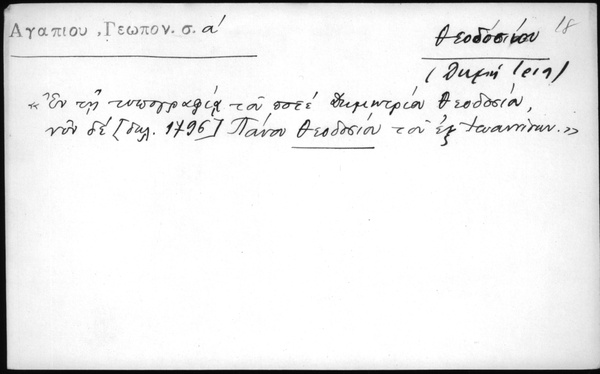 Αγαπιου , Γεωπον. σ. α'
Θεοδόσιου 18
(Δημήτριος)
«Ἐν τῇ τυπογραφίᾳ τοῦ ποτέ Δημητρίου Θεοδοσίου,
νῦν δέ [δηλ. 1796] Πάνου Θεοδοσίου τοῦ ἐξ Ἰωαννίνων.»